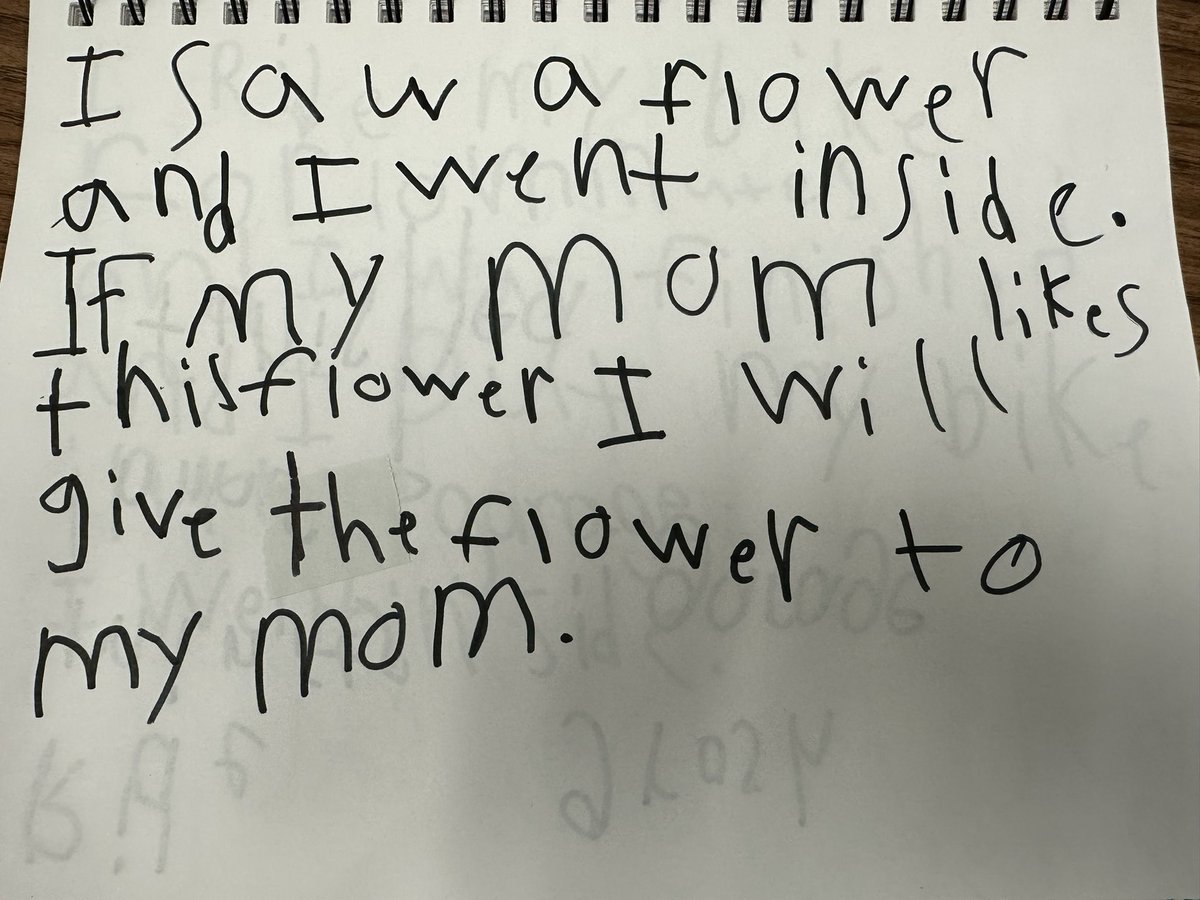 I saw a flower
and I went inside.
If my mom likes
this flower I will
give the flower to
my mom.